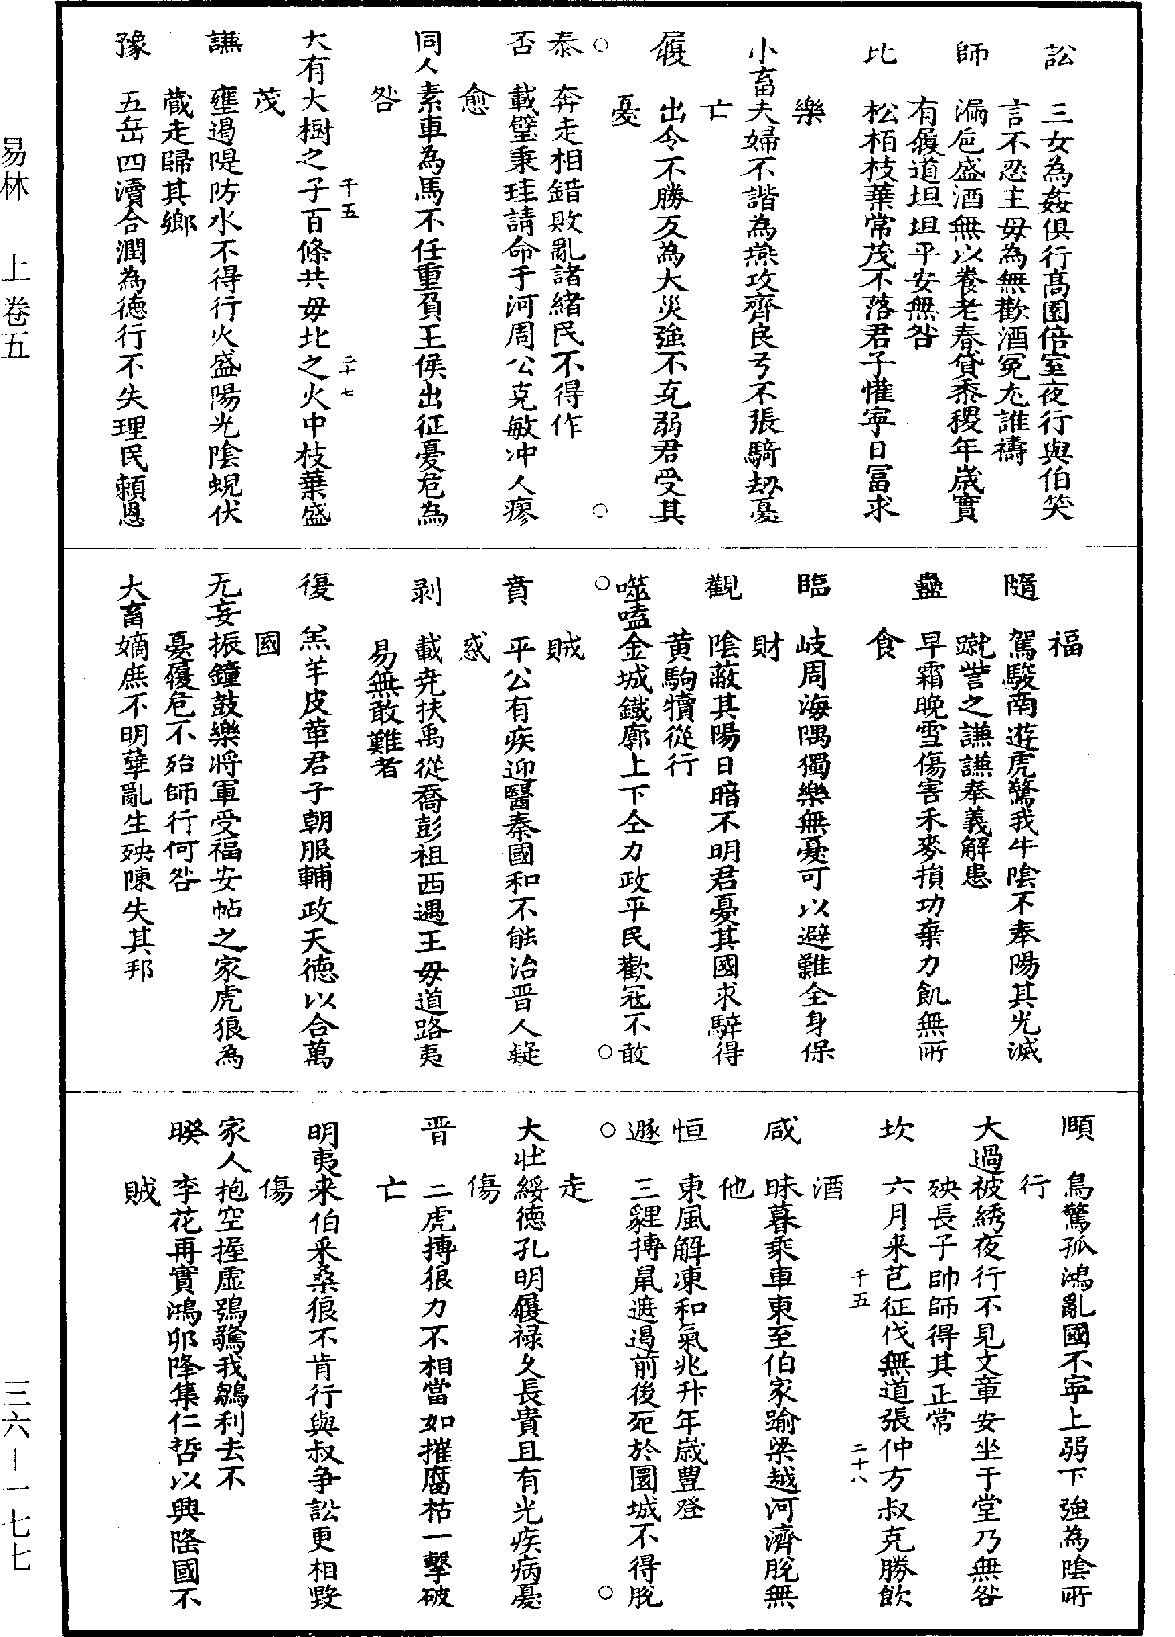 訟　三女為姦俱行高園倍室夜行與伯笑
言不忍主毋為無歡酒冤尤誰禱
師　漏卮盛酒無以養老春貸黍稷年歲實
有履道坦坦平安無咎
比　松栢枝葉常茂不落君子惟寧日冨求
樂
小畜夫婦不諧為燕攻齊良弓不張騎劫憂
亡
履　出令不勝反為大災強不克弱君受其
憂
泰　奔走相錯敗亂諸緒民不得作
否　載璧秉珪請命于河周公克敏冲人瘳
愈
同人素車為馬不任重負王侯出征憂危為
咎
大有大樹之子百條共毋北之火中枝葉盛
茂
千五
二十七
謙　壅遏隄防水不得行火盛陽光陰蜺伏
蔵走歸其鄉
豫　五岳四瀆合潤為德行不失理民賴恩
福
隨　駕駿南遊虎驚我牛陰不奉陽其光滅
蹴訾之謙謙奉義解患
蠱　早霜晚雪傷害禾麥損功棄力飢無所
食
臨　岐周海隅獨樂無憂可以避難全身保
財
觀　陰蔽其陽日暗不明君憂其國求騂得
黃駒犢從行
噬嗑金城鐵廓上下仝力政平民歡冦不敢
賊
賁　平公有疾迎醫秦國和不能治晋人疑
惑
剥　載堯扶禹從喬彭祖西遇王毋道路夷
易無敢難者
復　羔羊皮革君子朝服輔政天德以合萬
國
无妄振鐘鼓樂將軍受福安帖之家虎狼為
憂履危不殆師行何咎
大畜嫡庶不明孽亂生殃陳失其邦
頤　鳥驚孤鴻亂國不寜上弱下強為陰所
行
大過被綉夜行不見文章安坐于堂乃無咎
殃長子帥師得其正常
坎　六月采芑征伐無道張仲方叔克勝飲
酒
千五
二十八
咸　昧暮乘車東至伯家踰梁越河濟脫無
他
恒　東風解凍和氣兆升年歲豐登
遯　三貍摶鼠遮遏前後死於圜城不得脫
走
大壯綏德孔明履禄久長貴且有光疾病憂
傷
晋　二虎摶狼力不相當如摧腐枯一擊破
亡
明夷来伯采桑狼不肯行與叔争訟更相毀
傷
家人抱空握虛鴞驚我鶵利去不
睽　李花再實鴻卵降集仁哲以興隆國不
賊
易林　上卷五
三六－一七七